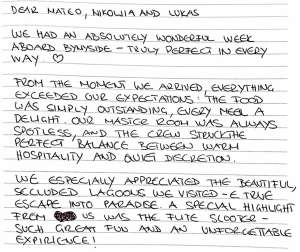 DEAR MATEO, NIKOLIJA AND LUKAS
WE HAD AN ABSOLUTELY WONDERFUL WEEK
ABOARD BYMYSIDE - TRULY PERFECT IN EVERY
WAY. ♡
FROM THE MOMENT WE ARRIVED, EVERYTHING
EXCEEDED OUR EXPECTATIONS: THE FOOD
WAS SIMPLY OUTSTANDING, EVERY MEAL A
DELIGHT. OUR MASTER ROOM WAS ALWAYS
SPOTLESS, AND THE CREW STRUCK THE
PERFECT BALANCE BETWEEN WARM
HOSPITALITY AND QUIET DISCRETION.
WE ESPECIALLY APPRECIATED THE BEAUTIFUL,
SECLUDED LAGOONS WE VISITED - E TRUE
ESCAPE INTO PARADISE A SPECIAL HIGHLIGHT
FROM US WAS THE FLITE SCOOTER -
SUCH GREAT FUN AND AN UNFORGETTABLE
EXPIRIENCE!